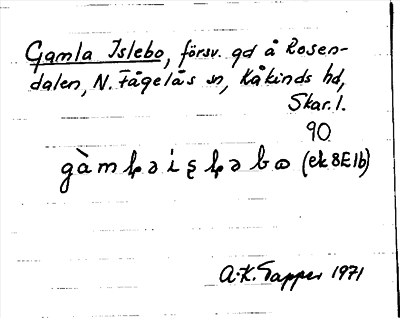 Gamla Islebo, försv. gd å Rosen-
dalen, N. Fågelås sn, Kåkinds hd,
Skar. l.
90
(ek 8E1b)
A-K. Tapper 1971